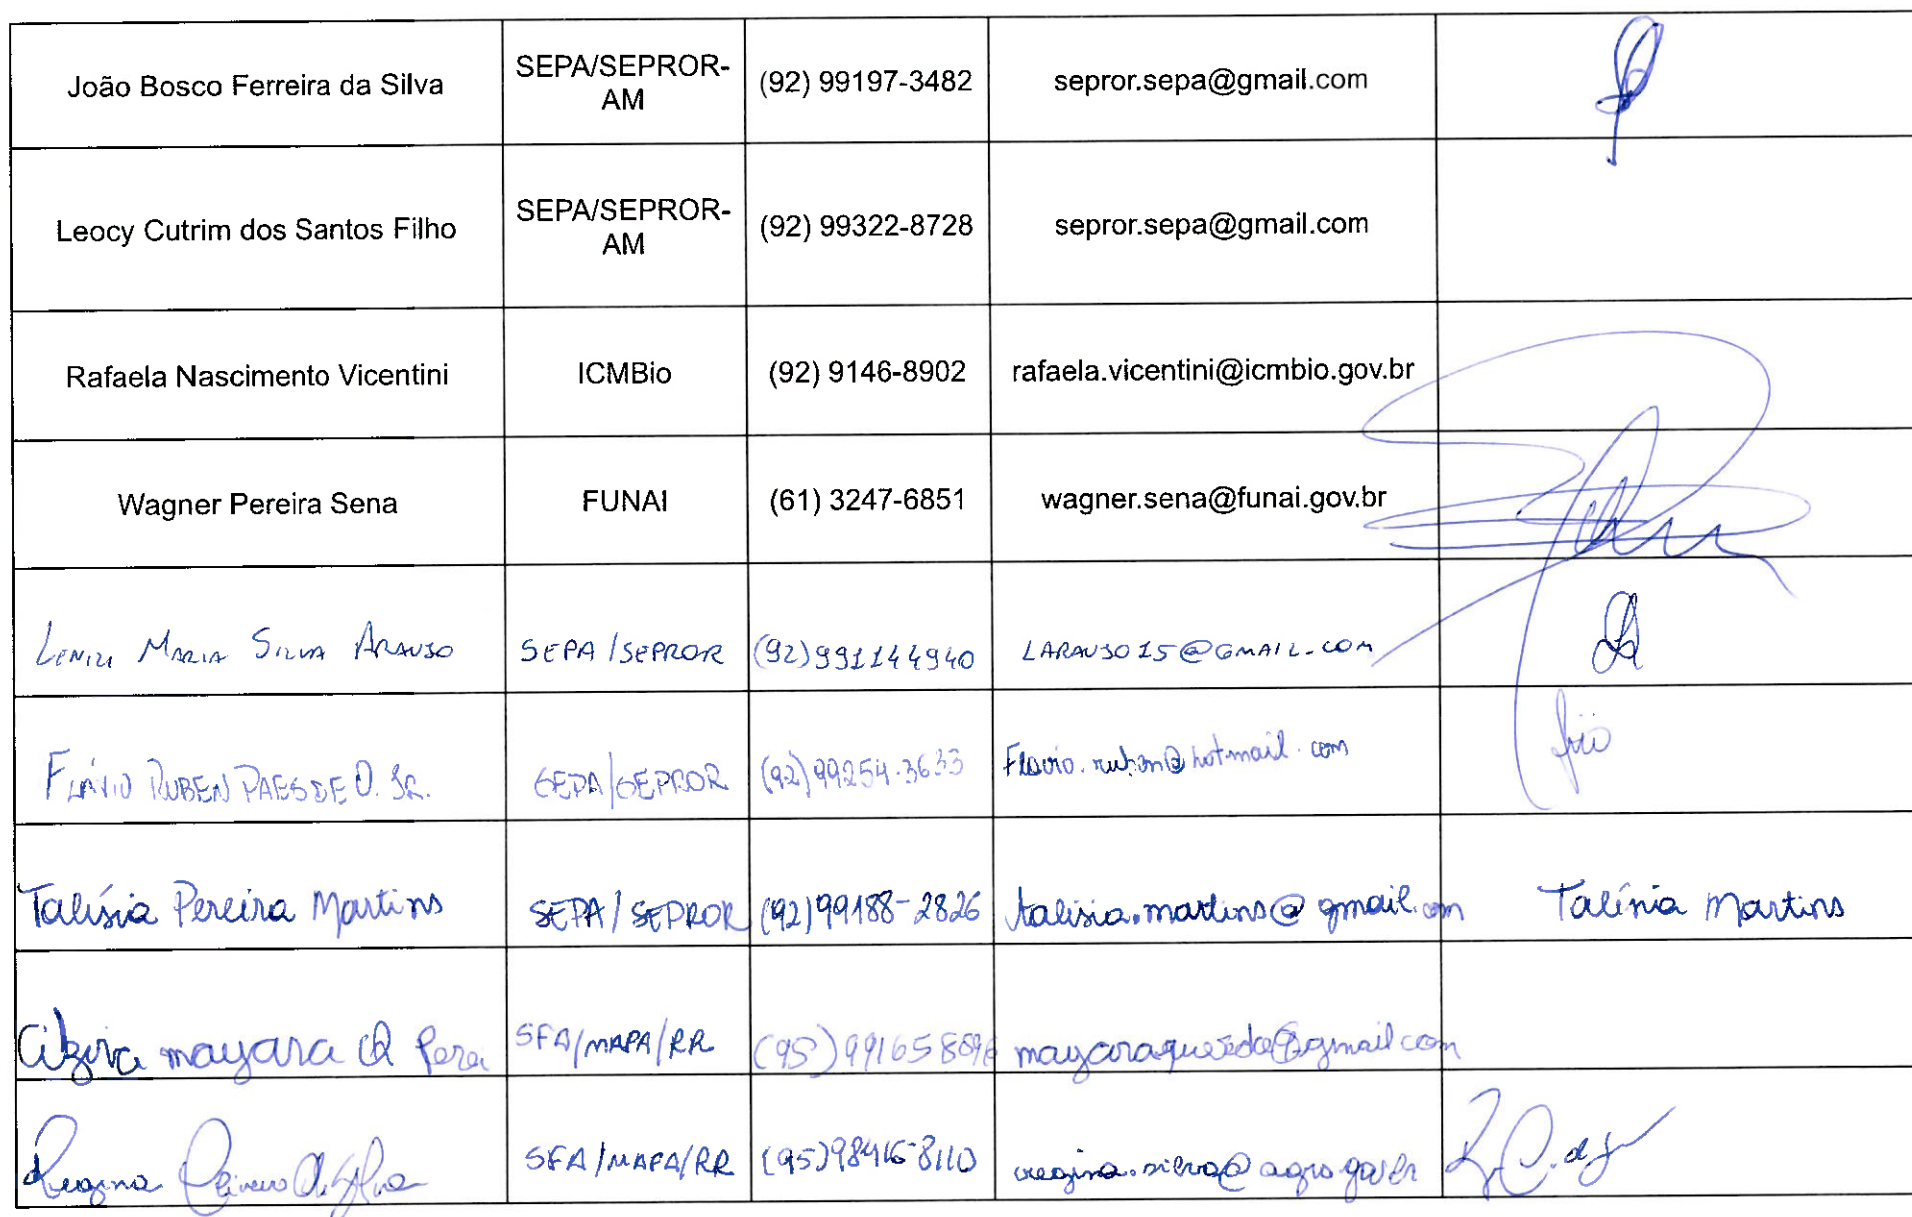 João Bosco Ferreira da Silva SEPA/SEPROR-AM (92) 99197-3482 sepror.sepa@gmail.com
Leocy Cutrim dos Santos Filho SEPA/SEPROR-AM (92) 99322-8728 sepror.sepa@gmail.com
Rafaela Nascimento Vicentini ICMBio (92) 9146-8902 rafaela.vicentini@icmbio.gov.br
Wagner Pereira Sena FUNAI (61) 3247-6851 wagner.sena@funai.gov.br
Maria Silva Araujo SEPA/SEPROR (92)991144940 LARAUJO15@GMAIL.COM
Flávio Ruben Paes de O. Jr. SEPA/SEPROR (92)99254-3633 Flavio.ruben@hotmail.com
Talísia Pereira Martins SEPA/SEPROR (92)99188-2826 talisia.martins@gmail.com Talísia Martins
mayara SFA/MAPA/RR (95)
Regina SFA/MAPA/RR (95)98416-8110 regina.silva@agro.gov.br